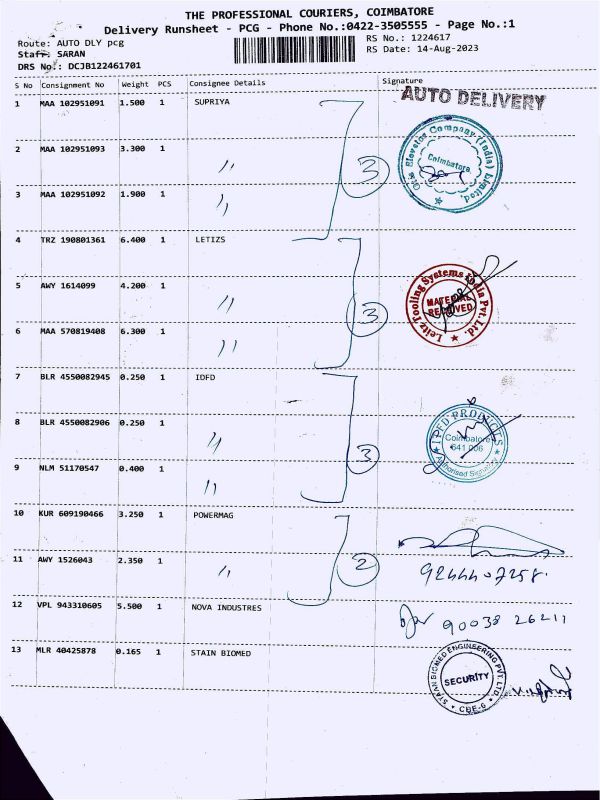 THE PROFESSIONAL COURIERS, COIMBATORE
Delivery Runsheet - PCG - Phone No.:0422-3505555 - Page No.:1
Route: AUTO DLY pcg RS No.: 1224617
Staff: SARAN RS Date: 14-Aug-2023
DRS No.: DCJB122461701
S No Consignment No Weight PCS Consignee Details Signature
AUTO DELIVERY
1 MAA 102951091 1.500 1 SUPRIYA
2 MAA 102951093 3.300 1 〃 3
Elevator Company (India) Limited.
Coimbatore.
3 MAA 102951092 1.900 1 〃
4 TRZ 190801361 6.400 1 LETIZS
5 AWY 1614099 4.200 1 〃 3
Leitz Tooling Systems India Pvt. Ltd.
MATERIAL
RECEIVED
6 MAA 570819408 6.300 1 〃
7 BLR 4550082945 0.250 1 IDFD
8 BLR 4550082906 0.250 1 〃 3
IPFD PRODUCTS
Coimbatore
641 006
Authorised Signatory
9 NLM 51170547 0.400 1 〃
10 KUR 609190466 3.250 1 POWERMAG
11 AWY 1526043 2.350 1 〃 2
9244407258.
12 VPL 943310605 5.500 1 NOVA INDUSTRES
90038 26211
13 MLR 40425878 0.165 1 STAIN BIOMED
BIOMED ENGINEERING PVT. LTD.
SECURITY
CBE-6